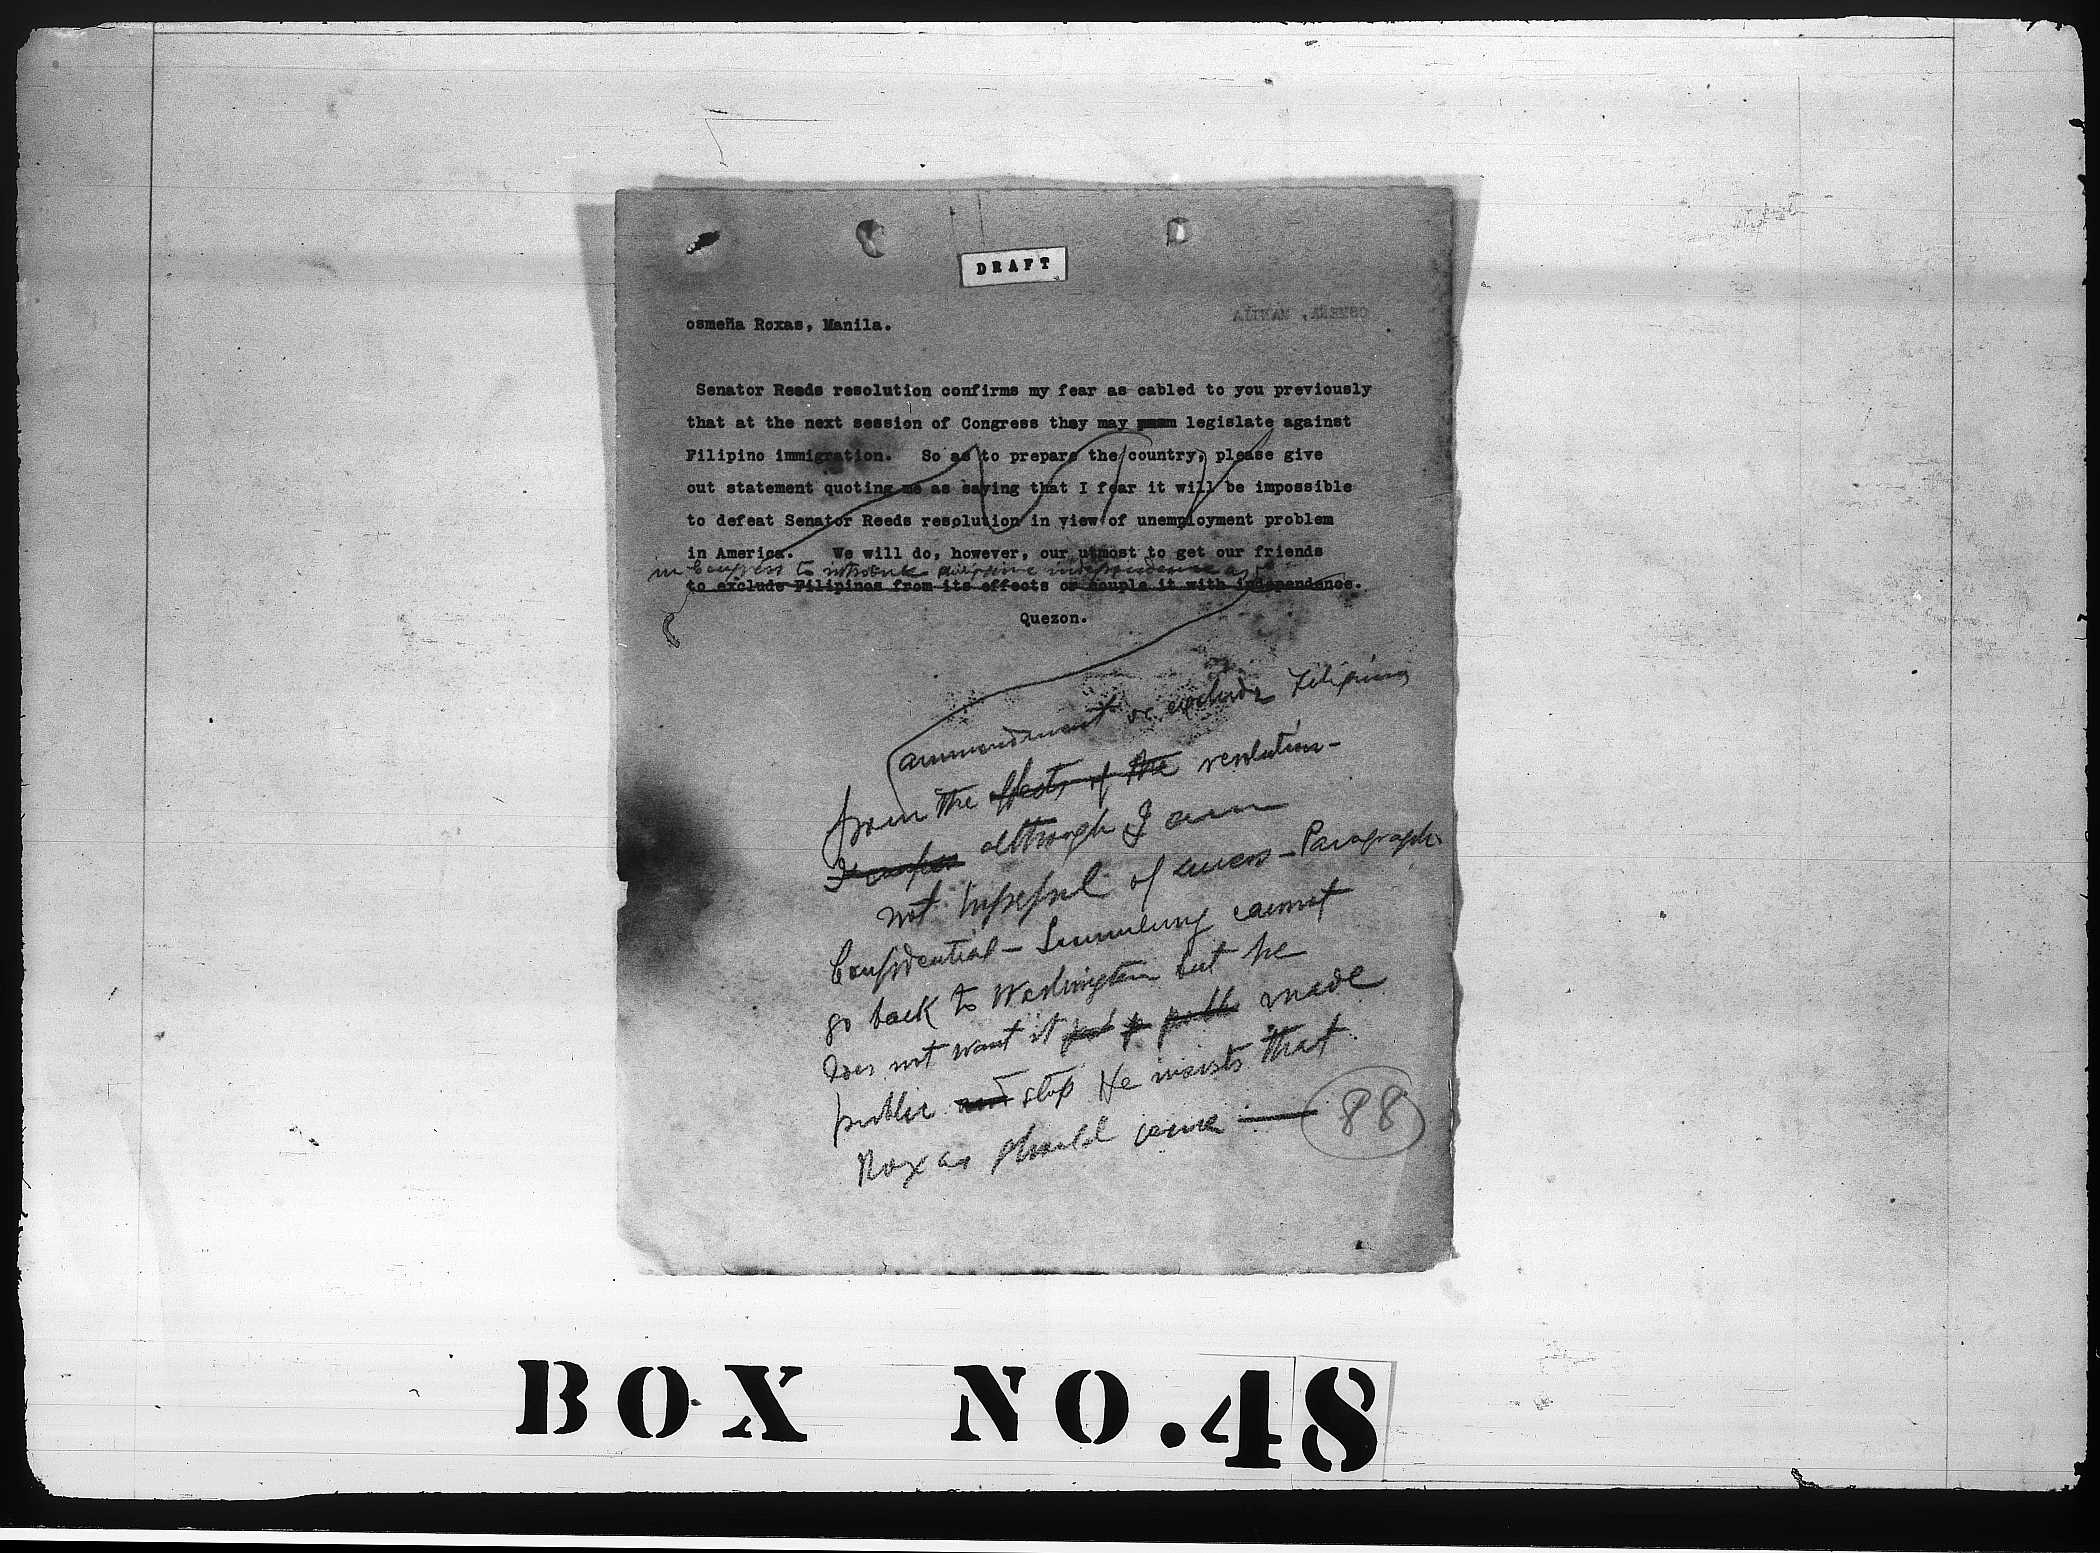 DRAFT
OSMEÑA, MANILA
osmeña Roxas, Manila.
Senator Reeds resolution confirms my fear as cabled to you previously
that at the next session of Congress they may legislate against
Filipino immigration. So as to prepare the country, please give
out statement quoting me as saying that I fear it will be impossible
to defeat Senator Reeds resolution in view of unemployment problem
in America. We will do, however, our utmost to get our friends
in Congress to introduce Philippine independence as
to exclude Filipinos from its effects or couple it with independence.
Quezon.
ammendment or exclude Filipinos
from the effects of the resolution -
although I am
not hopeful of success - Paragraph
Confidential - Sumulong cannot
go back to Washington but he
does not want it made
public and stop He insists that
Roxas should come —
88
BOX NO.48